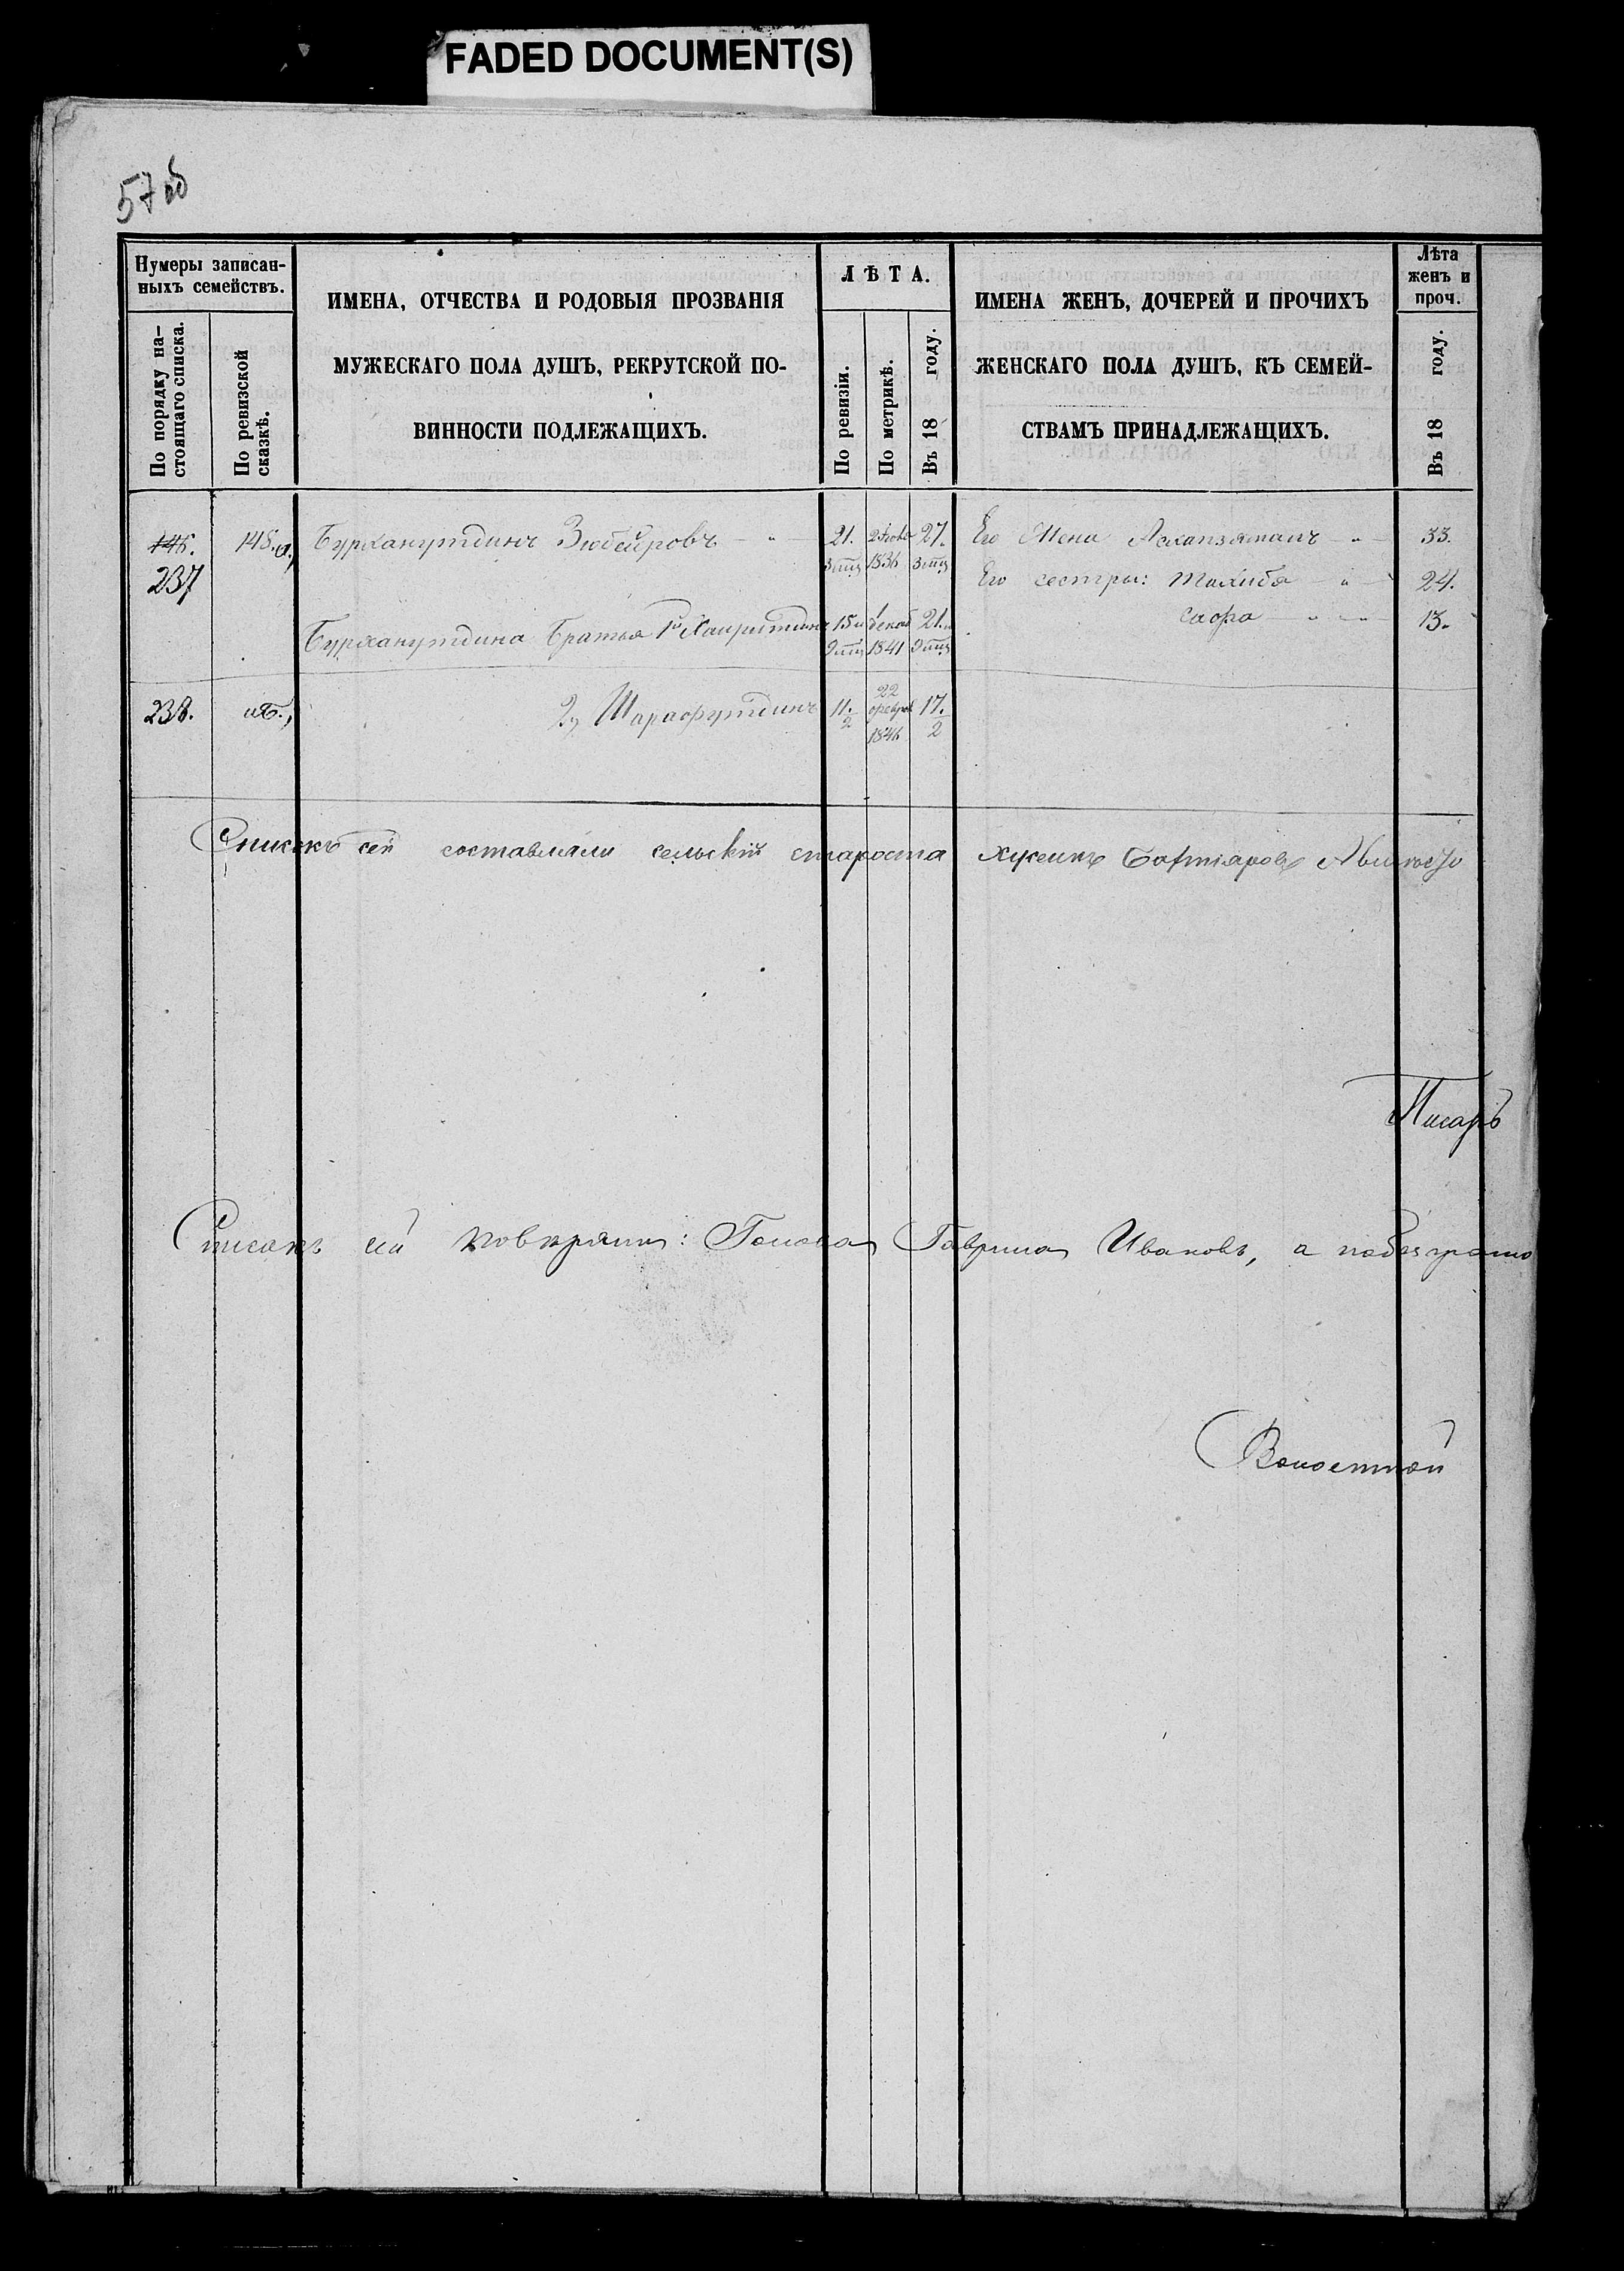 FADED DOCUMENT(S)
57 об
Нумеры записан-
ныхъ семействъ.
По порядку на-
стоящаго списка.
По ревизской
сказкѣ.
ИМЕНА, ОТЧЕСТВА И РОДОВЫЯ ПРОЗВАНІЯ
МУЖЕСКАГО ПОЛА ДУШЪ, РЕКРУТСКОЙ ПО-
ВИННОСТИ ПОДЛЕЖАЩИХЪ.
ЛѢТА.
По ревизіи.
По метрикѣ.
Въ 18 году.
ИМЕНА ЖЕНЪ, ДОЧЕРЕЙ И ПРОЧИХЪ
ЖЕНСКАГО ПОЛА ДУШЪ, КЪ СЕМЕЙ-
СТВАМЪ ПРИНАДЛЕЖАЩИХЪ.
Лѣта
женъ и
проч.
Въ 18 году.
145. 145.а, Бурханутдинъ Зюбейровъ 21. 27. Его Жена 33.
237 3 мц 1836 3 мц Его сестры: 24.
Сафа 13.
Бурханутдина Братья 1й Хайритдинъ 15 и декаб 21. и
9 мц 1841 9 мц
238. 2, Шарафутдинъ 11. 2 22 феврал 1846 17. 2
Списокъ сей составляли сельскій староста Хусеинъ Бахтіяровъ
Писарь
Списокъ сей повѣряли: Голова Гаврила Ивановъ, а
Волостной